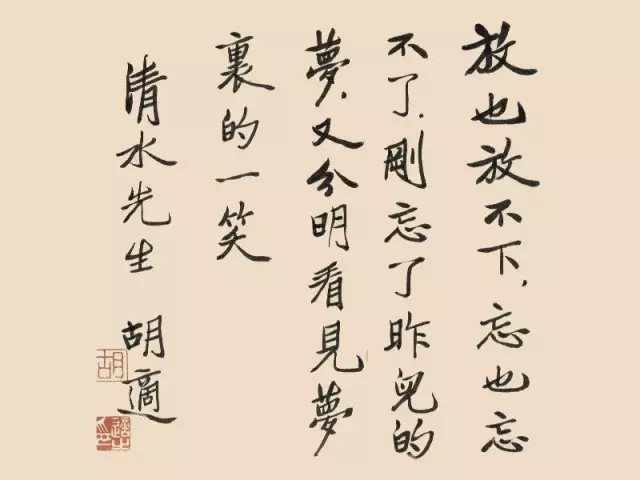 放也放不下，忘也忘
不了，剛忘了昨兒的
夢，又分明看見夢
裏的一笑
清水先生 胡適
胡